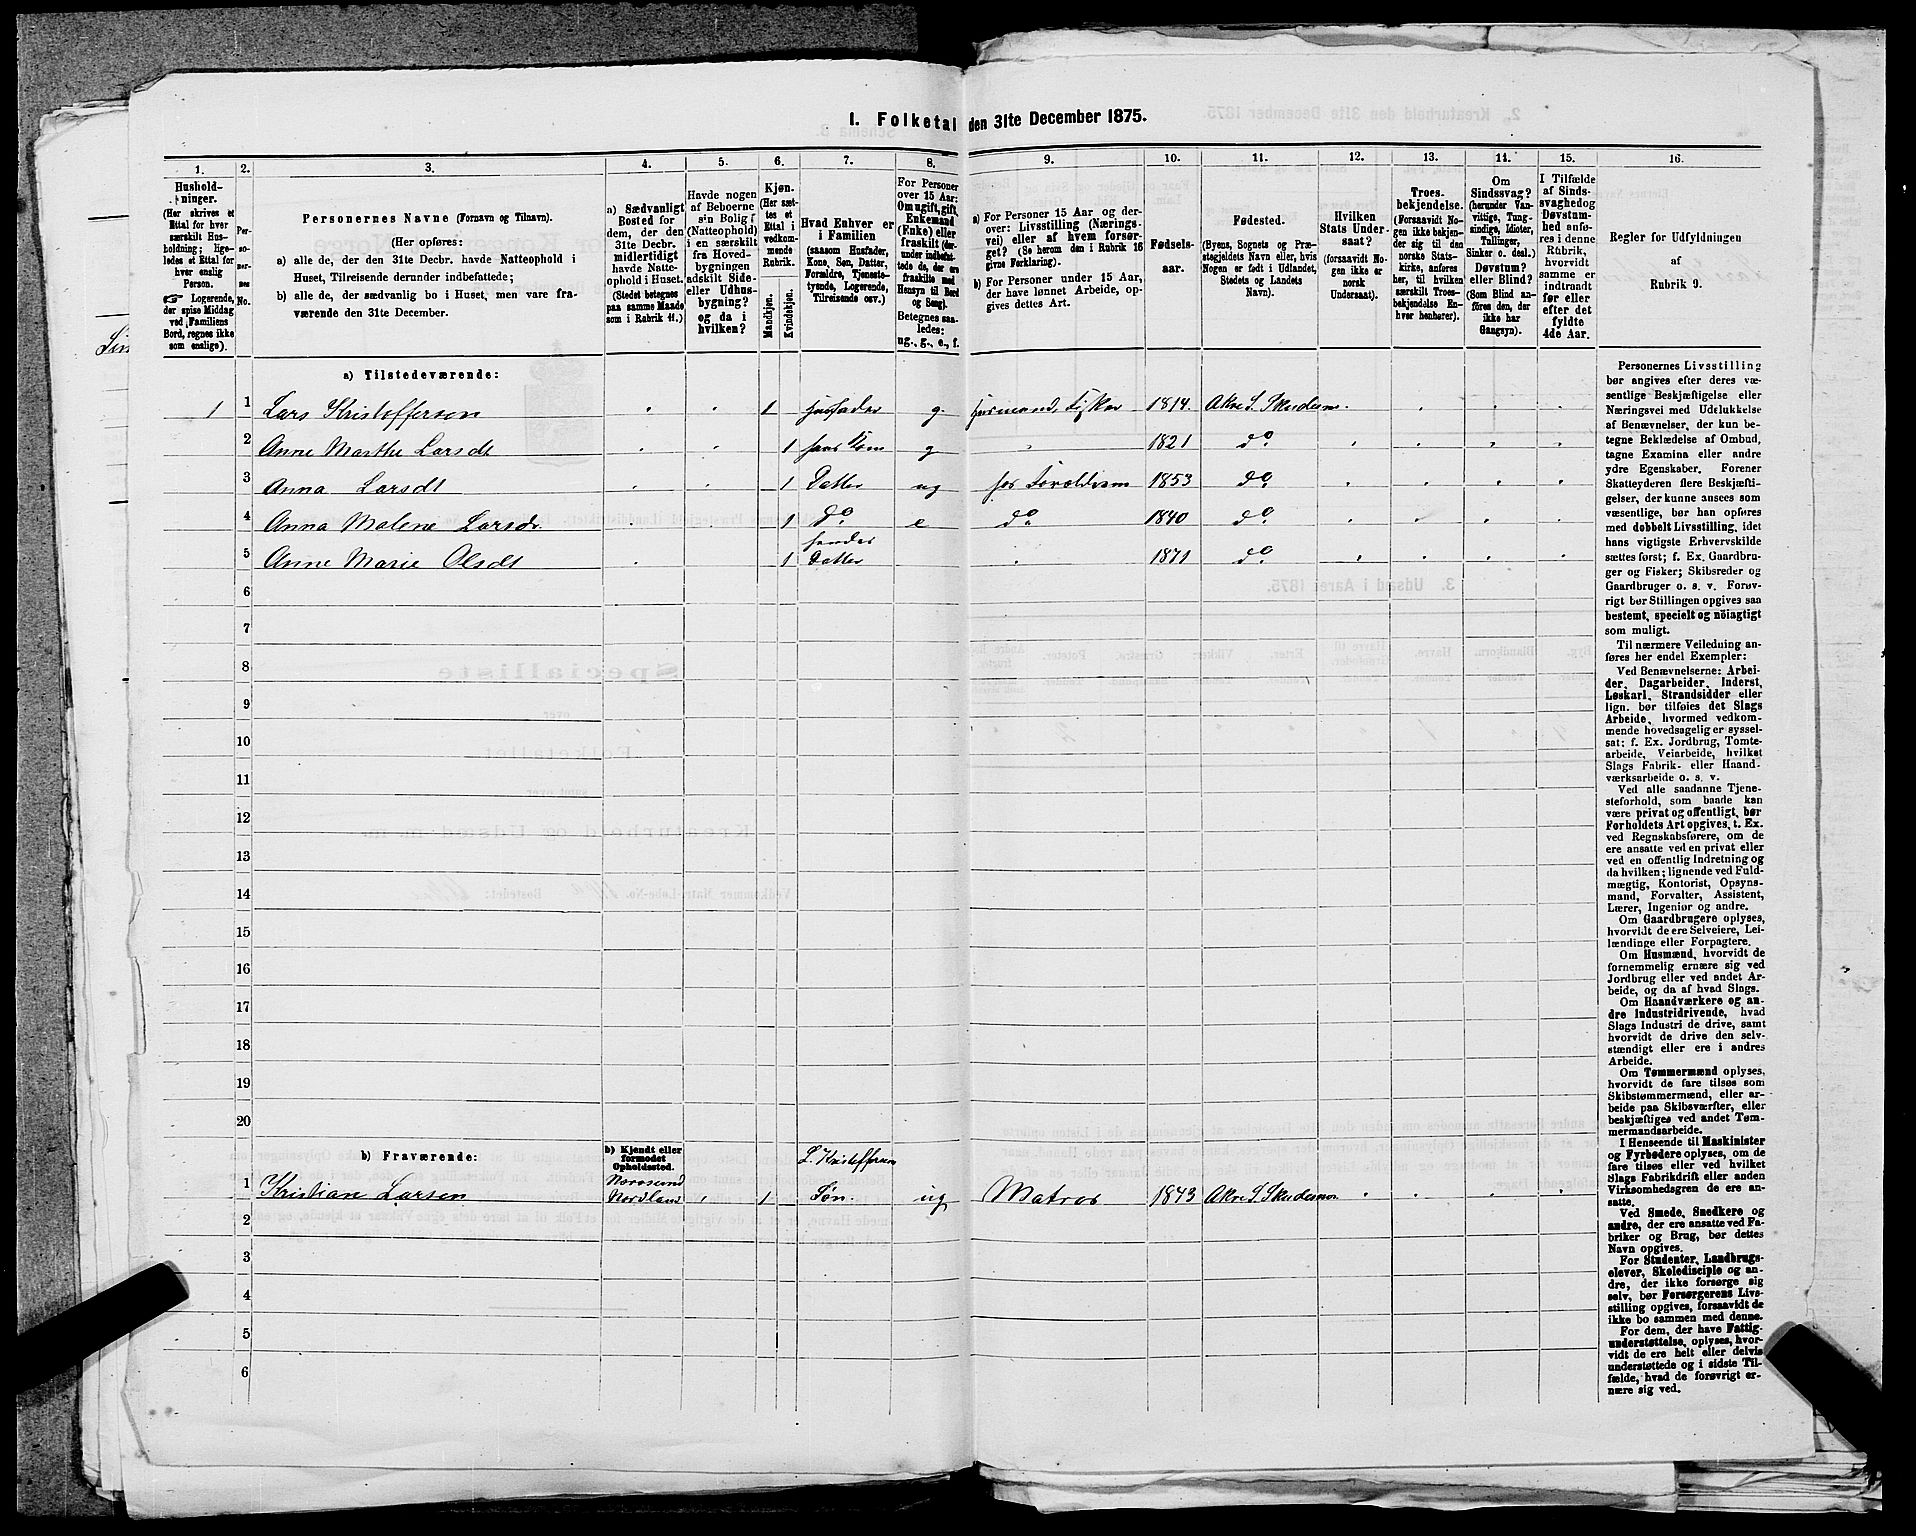 1. Folketal den 31te December 1875.
1.
Hushold-
ninger.
(Her skrives et
Ettal for hver
særskilt Hus-
holdning; lige-
ledes et Ettal for
hver enslig
Person.
Logerende,
der spise Middag
ved Familiens
Bord, regnes ikke
som enslige).
2.
Per-
so-
ner-
nes
No.
3.
Personernes Navne (Fornavn og Tilnavn).
(Her opføres:
a) alle de, der den 31te Decbr. havde Natteophold i
Huset, Tilreisende derunder indbefattede;
b) alle de, der sædvanlig bo i Huset, men vare fra-
værende den 31te December.
4.
a) Sædvanligt
Bosted for
dem, der den
31te Decbr.
midlertidigt
havde Natte-
ophold i Huset.
(Stedet betegnes
paa samme Maade
som i Rubrik 11.)
5.
Havde nogen
af Beboerne
sin Bolig
(Natteophold)
i en særskilt
fra Hoved-
bygningen
adskilt Side-
eller Udhus-
bygning?
og da i
hvilken?
6.
Kjøn.
(Her sæt-
tes et
Ettal i
vedkom-
mende
Rubrik.
Mandkjøn.
Kvindekjøn.
7.
Hvad Enhver er
i Familien
(saasom Husfader,
Kone, Søn, Datter,
Forældre, Tjeneste-
tyende, Logerende,
Tilreisende osv.)
8.
For Personer
over 15 Aar:
Om ugift, gift,
Enkemand
(Enke) eller
fraskilt (der-
under indbefat-
tede de, der ere
fraskilte med
Hensyn til Bord
og Seng).
Betegnes saa-
ledes:
ug., g., e., f.
9.
a) For Personer 15 Aar og der-
over: Livsstilling (Nærings-
vei) eller af hvem forsør-
get? (Se herom den i Rubrik 16
givne Forklaring).
b) For Personer under 15 Aar,
der have lønnet Arbeide, op-
gives dettes Art.
10.
Fødsels-
aar.
11.
Fødested.
(Byens, Sognets og Præ-
stegjeldets Navn eller, hvis
Nogen er født i Udlandet,
Stedets og Landets
Navn).
12.
Hvilken
Stats Under-
saat?
(forsaavidt No-
gen ikke er
norsk
Undersaat).
13.
Troes-
bekjendelse.
(Forsaavidt No-
gen ikke bekjen-
der sig til den
norske Stats-
kirke, anføres
her, til hvilken
særskilt Troes-
bekjendelse En-
hver henhører).
14.
Om
Sindssvag?
(herunder Van-
vittige, Tung-
sindige, Idioter,
Tullinger,
Sinker o. desl.)
Døvstum?
eller Blind?
(Som Blind an-
føres den, der
ikke har
Gangsyn).
15.
I Tilfælde
af Sinds-
svaghed og
Døvstum-
hed anfø-
res i denne
Rubrik,
hvorvidt
samme er
indtraadt
før eller
efter det
fyldte
4de Aar.
16.
Regler for Udfyldningen
af
Rubrik 9.
a) Tilstedeværende:
1 1 Lars Kristoffersen 1 husfader g. husmand, fisker 1814. Akre S. Skudesnes
2 Anne Marthe Larsdt 1 hans Kone g 1821 do.
3 Anna Larsdt 1 Datter ug hos Forældrene 1853 do.
4 Anna Malene Larsdr 1 do. e do. 1840 do.
5 Anne Marie Olsdt 1 hendes Datter 1871 do
6
7
8
9
10
11
12
13
14
15
16
17
18
19
20
b) Fraværende:
b) Kjendt eller
formodet
Opholdssted.
L. Kristoffersen
1 Kristian Larsen Nordland 1 Søn. ug Matros 1843 Akre S. Skudesnes
2
3
4
5
6
Personernes Livsstilling
bør angives efter deres væ-
sentlige Beskjæftigelse eller
Næringsvei med Udelukkelse
af Benævnelser, der kun be-
tegne Beklædelse af Ombud,
tagne Examina eller andre
ydre Egenskaber. Forener
Skatteyderen flere Beskjæfti-
gelser, der kunne ansees som
væsentlige, bør han opføres
med dobbelt Livsstilling, idet
hans vigtigste Erhvervskilde
sættes først; f. Ex. Gaardbru-
ger og Fisker; Skibsreder og
Gaardbruger o. s. v. Forøv-
rigt bør Stillingen opgives saa
bestemt, specielt og nöiagtigt
som muligt.
Til nærmere Veiledning an-
føres her endel Exempler:
Ved Benævnelserne: Arbei-
der, Dagarbeider, Inderst,
Løskarl, Strandsidder eller
lign. bør tilføies det Slags
Arbeide, hvormed vedkom-
mende hovedsagelig er syssel-
sat; f. Ex. Jordbrug, Tomte-
arbeide, Veiarbeide, hvilket
Slags Fabrik- eller Haand-
værksarbeide o. s. v.
Ved alle saadanne Tjene-
steforhold, som baade kan
være privat og offentligt, bør
Forholdets Art opgives, t. Ex.
ved Regnskabsførere, om de
ere ansatte ved en privat eller
ved en offentlig Indretning og
da hvilken; lignende ved Fuld-
mægtig, Kontorist, Opsyns-
mand, Forvalter, Assistent,
Lærer, Ingeniør og andre.
Om Gaardbrugere oplyses,
hvorvidt de ere Selveiere, Lei-
lændinge eller Forpagtere.
Om Husmænd, hvorvidt de
fornemmelig ernære sig ved
Jordbrug eller ved andet Ar-
beide, og da af hvad Slags.
Om Haandværkere og an-
dre Industridrivende, hvad
Slags Industri de drive, samt
hvorvidt de drive den selv-
stændigt eller ere i andres
Arbeide.
Om Tømmermænd oplyses,
hvorvidt de fare tilsøs som
Skibstømmermænd, eller ar-
beide paa Skibsværfter, eller
beskjæftiges ved andet Tøm-
mermandsarbeide.
I Henseende til Maskinister
og Fyrbødere oplyses, om de
fare tilsøs eller ved hvilket
Slags Fabrikdrift eller anden
Virksomhed de ere an-
satte.
Ved Smede, Snedkere og
andre, der ere ansatte ved Fa-
briker og Brug, bør dettes
Navn opgives.
For Studenter, Landbrugs-
elever, Skoledisciple og an-
dre, der ikke forsørge sig
selv, bør Forsørgerens Livs-
stilling opgives, forsaavidt de
ikke bo sammen med denne.
For dem, der have Fattig-
understøttelse, oplyses, hvor-
vidt de ere helt eller delvis
understøttede og i sidste Til-
fælde, hvad de forøvrigt er-
nære sig ved.